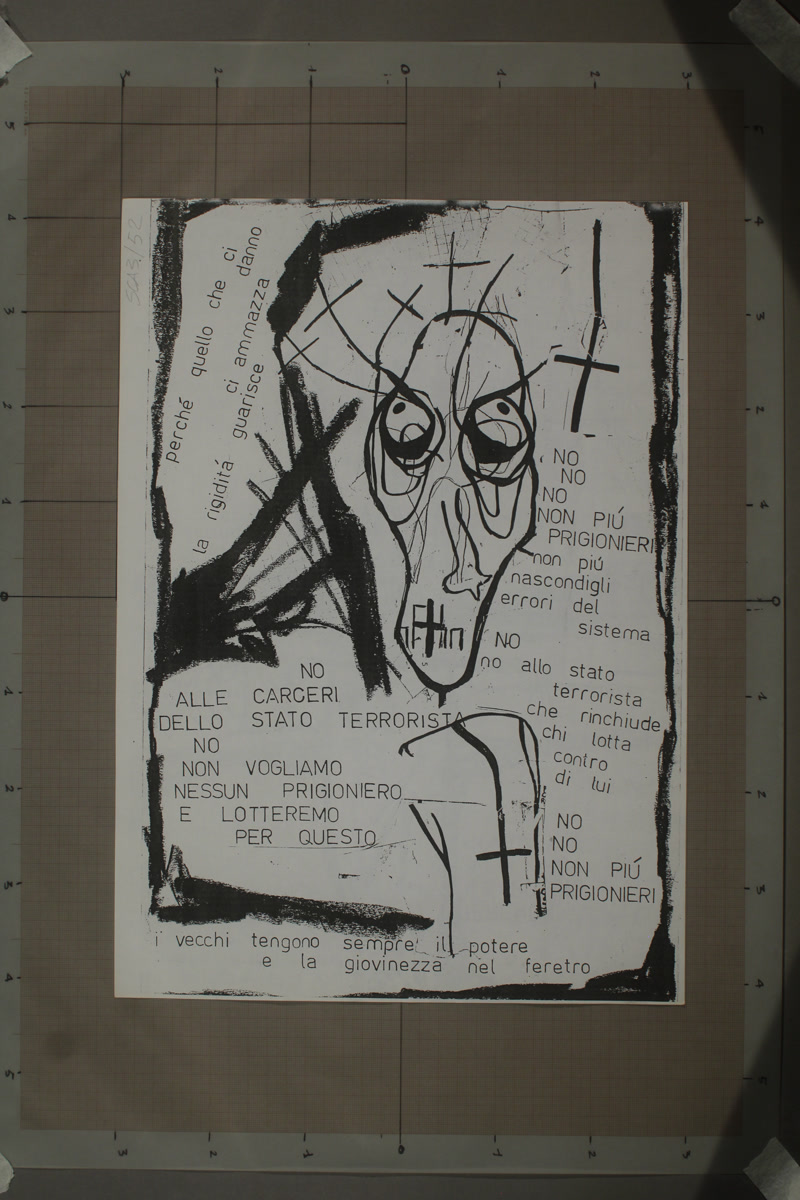 perché quello che ci danno
ci ammazza
la rigiditá guarisce
NO
NO
NO
NON PIÚ
PRIGIONIERI
non piú
nascondigli
errori del
sistema
NO
no allo stato
terrorista
che rinchiude
chi lotta
contro
di lui
NO
NO
NON PIÚ
PRIGIONIERI
NO
ALLE CARCERI
DELLO STATO TERRORISTA
NO
NON VOGLIAMO
NESSUN PRIGIONIERO
E LOTTEREMO
PER QUESTO
i vecchi tengono sempre il potere
e la giovinezza nel feretro